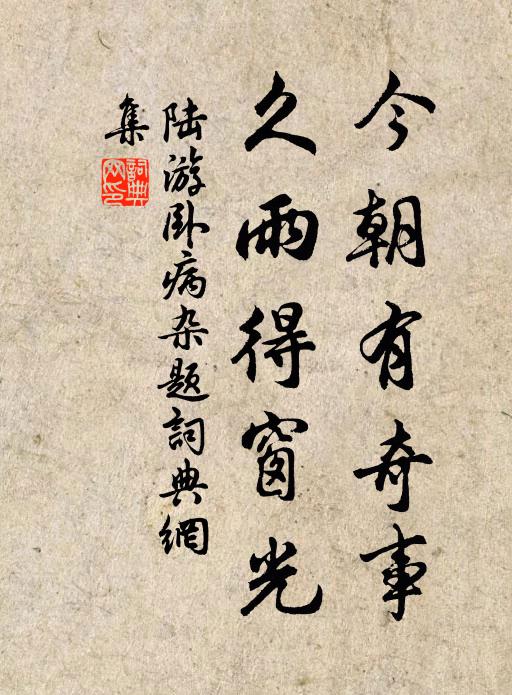 今朝有奇事
久雨得窗光
陆游卧病杂题詞典網
集
詞典網印